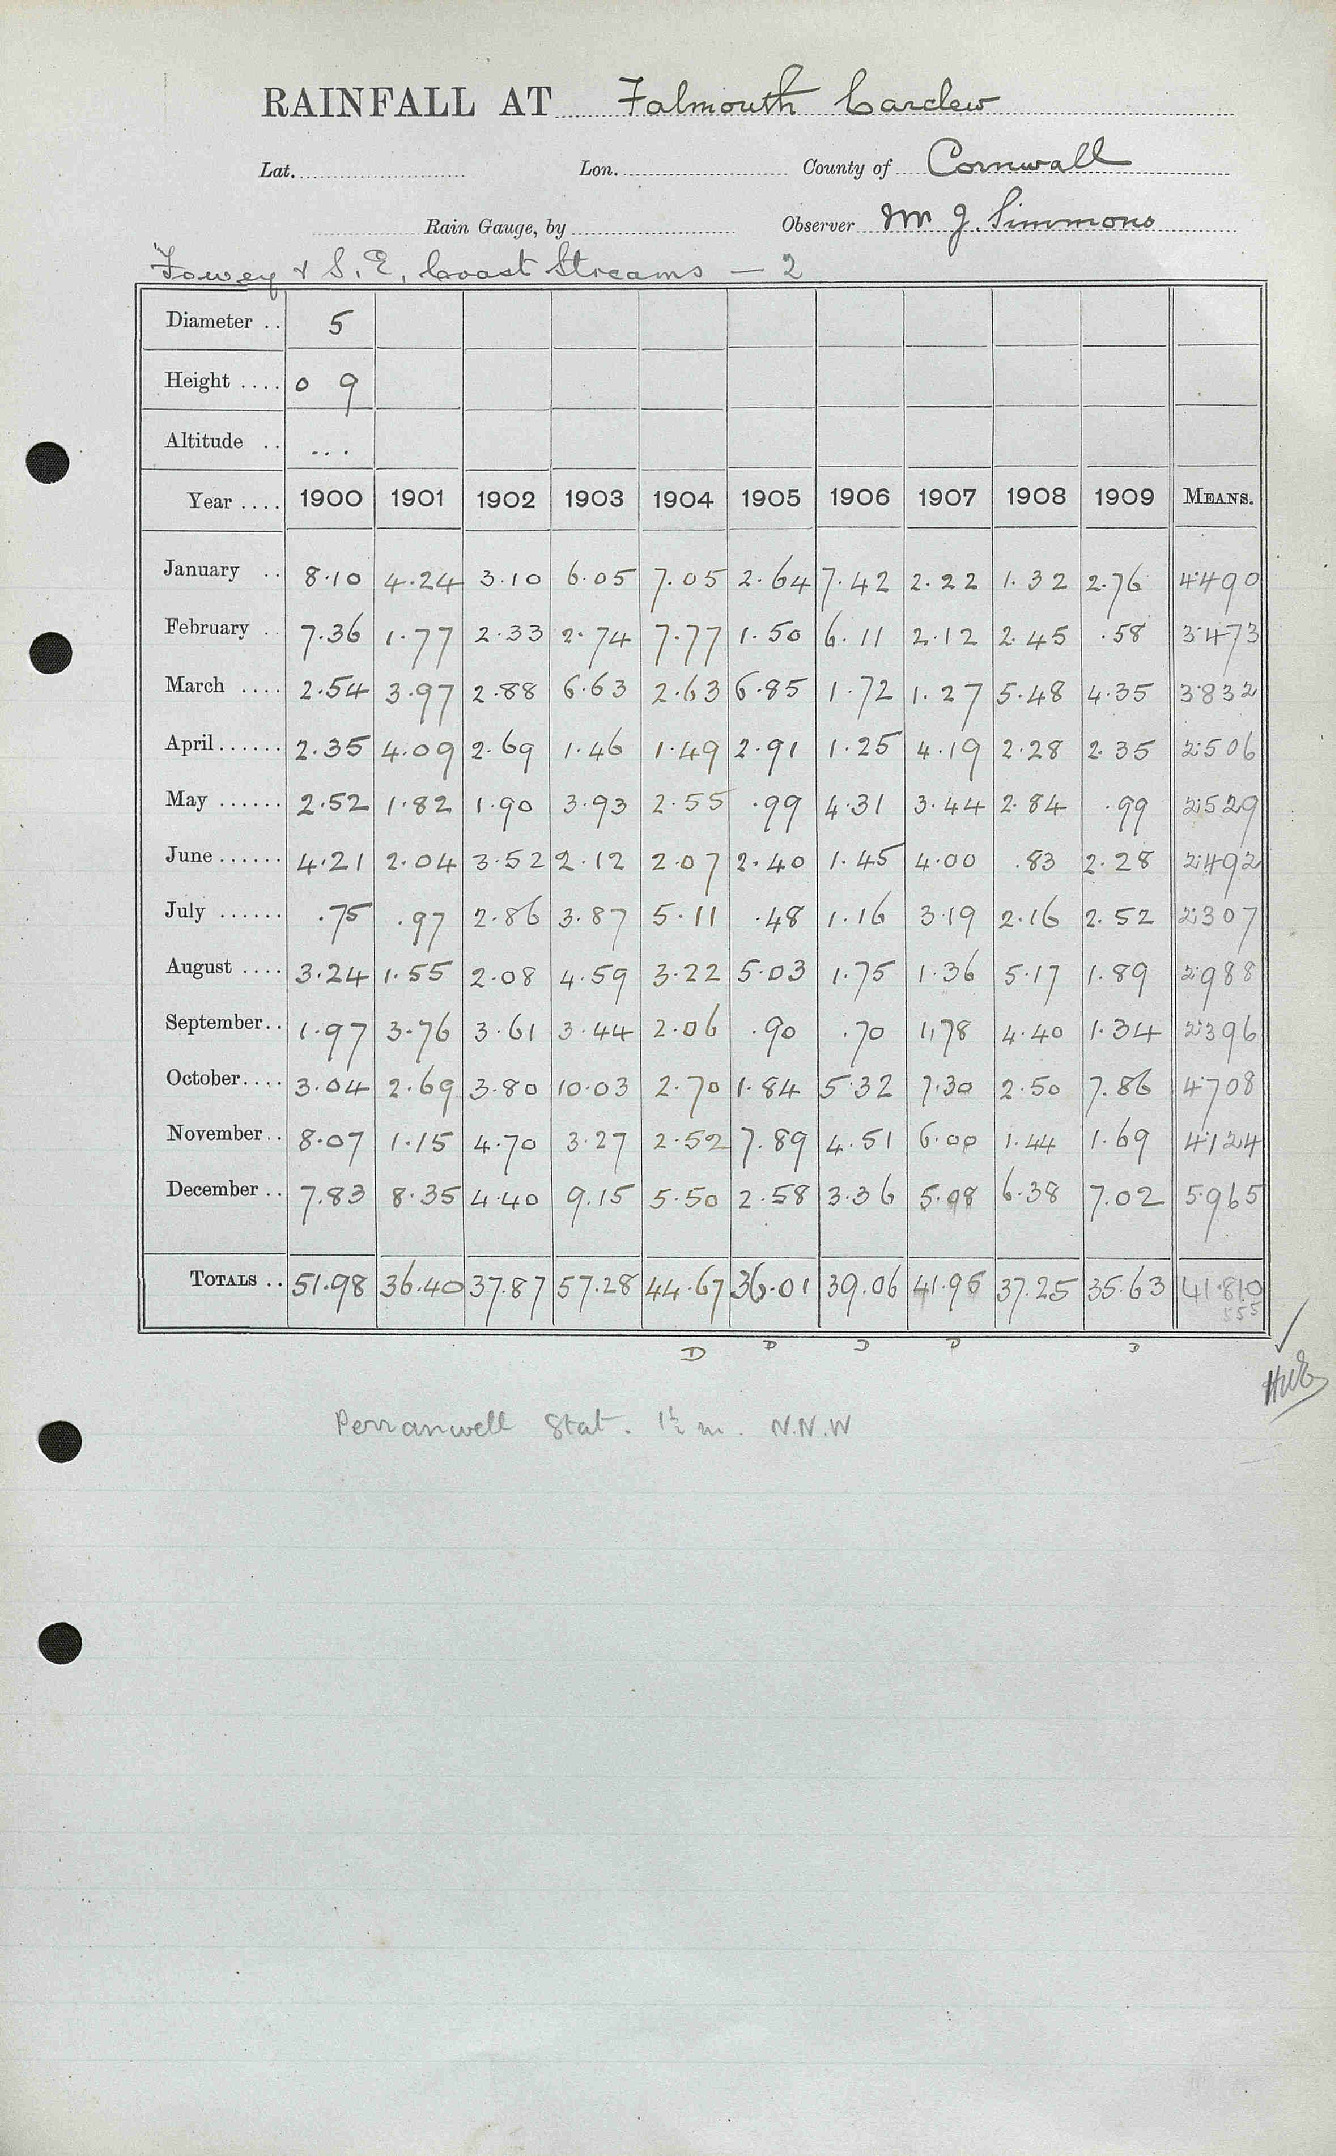 RAINFALL AT Falmouth Carclew
Lat. Lon. County of Cornwall
Rain Gauge, by Observer Mr J. Simmons
Fowey & S.E. Coast Streams — 2
Diameter .. 5
Height .... 0 9
Altitude .. ...
Year .... 1900 1901 1902 1903 1904 1905 1906 1907 1908 1909 MEANS.
January .. 8.10 4.24 3.10 6.05 7.05 2.64 7.42 2.22 1.32 2.76 4.490
February .. 7.36 1.77 2.33 2.74 7.77 1.50 6.11 2.12 2.45 .58 3.473
March .... 2.54 3.97 2.88 6.63 2.63 6.85 1.72 1.27 5.48 4.35 3.832
April...... 2.35 4.09 2.69 1.46 1.49 2.91 1.25 4.19 2.28 2.35 2.506
May ...... 2.52 1.82 1.90 3.93 2.55 .99 4.31 3.44 2.84 .99 2.529
June ...... 4.21 2.04 3.52 2.12 2.07 2.40 1.45 4.00 .83 2.28 2.492
July ...... .75 .97 2.86 3.87 5.11 .48 1.16 3.19 2.16 2.52 2.307
August .... 3.24 1.55 2.08 4.59 3.22 5.03 1.75 1.36 5.17 1.89 2.988
September.. 1.97 3.76 3.61 3.44 2.06 .90 .70 1.78 4.40 1.34 2.396
October.... 3.04 2.69 3.80 10.03 2.70 1.84 5.32 7.30 2.50 7.86 4.708
November.. 8.07 1.15 4.70 3.27 2.52 7.89 4.51 6.00 1.44 1.69 4.124
December .. 7.83 8.35 4.40 9.15 5.50 2.58 3.36 5.08 6.38 7.02 5.965
TOTALS .. 51.98 36.40 37.87 57.28 44.67 36.01 39.06 41.95 37.25 35.63 41.810
555
D D D D D
Perranwell Stat. 1½ m. N.N.W